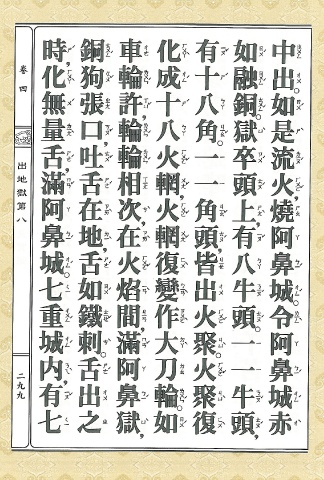 中出。如是流火,燒阿鼻城。令阿鼻城赤
如融銅。獄卒頭上,有八牛頭。一一牛頭,
有十八角。一一角頭,皆出火聚。火聚復
化成十八火輞。火輞復變作大刀輪。如
車輪許,輪輪相次,在火焰間,滿阿鼻獄,
銅狗張口,吐舌在地。舌如鐵刺。舌出之
時,化無量舌,滿阿鼻城。七重城內,有七
卷四
出地獄第八
二九九